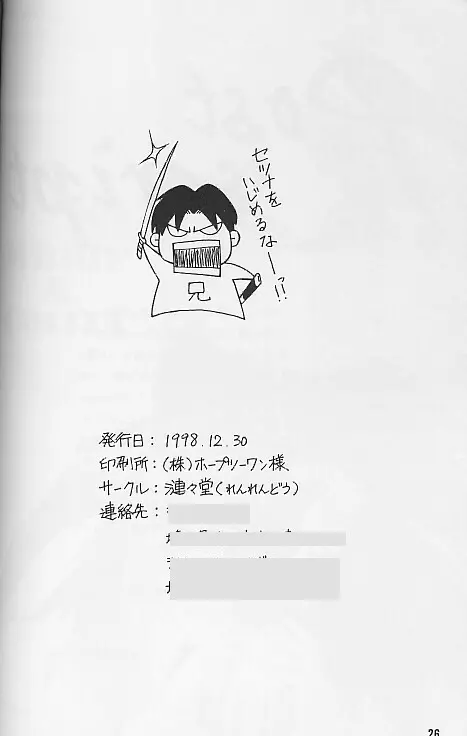 セツナを
いじめるなーっ!!
兄
発行日：1998.12.30
印刷所：(株)ホープツーワン様、
サークル：漣々堂(れんれんどう)
連絡先：
26